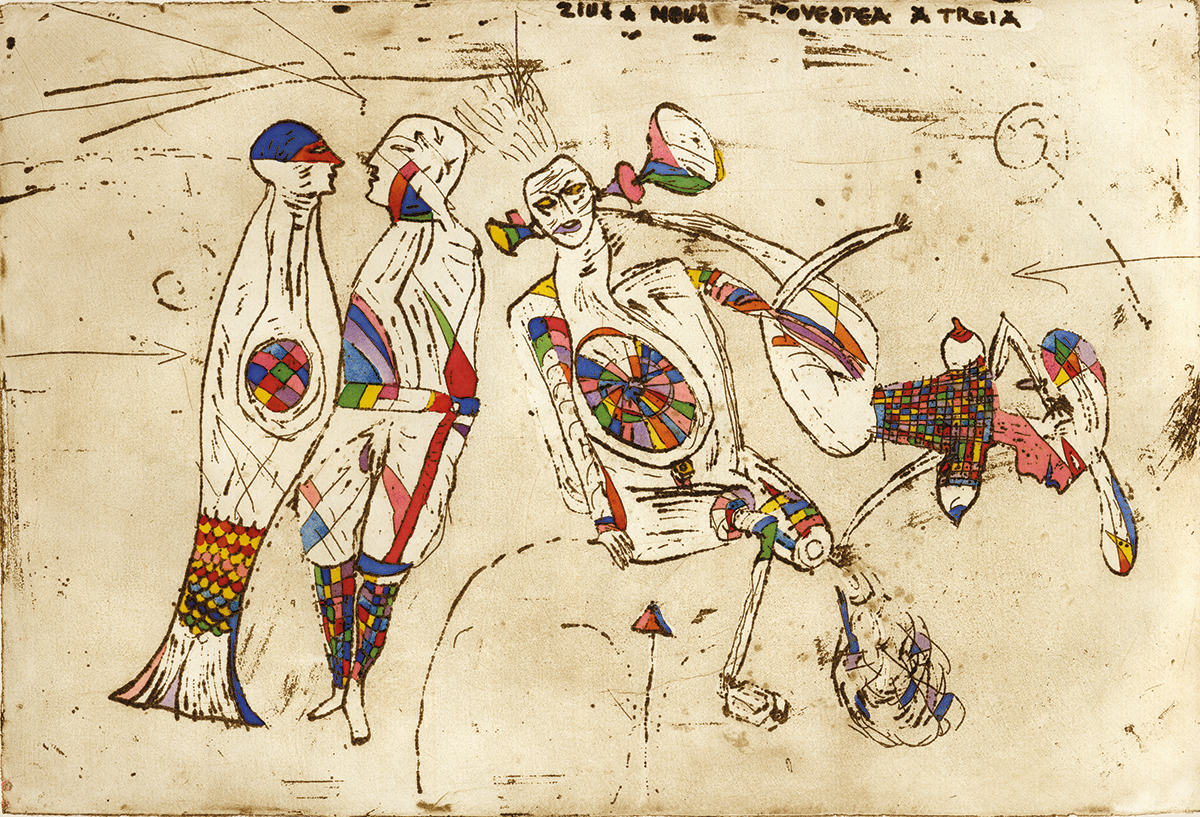 ZIUA A NOUA — POVESTEA A TREIA